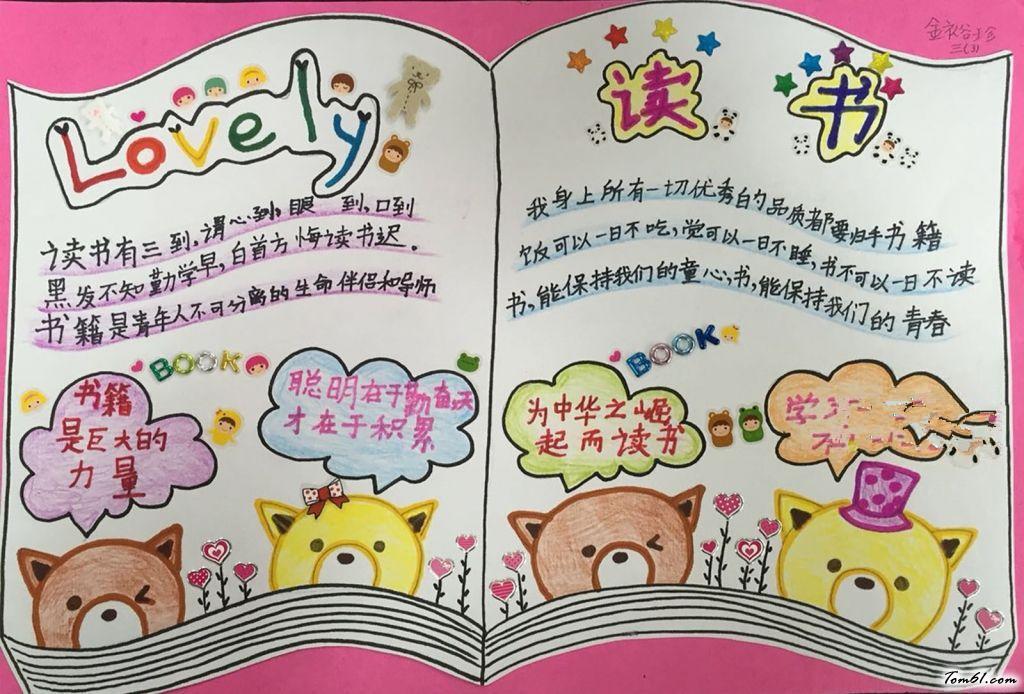 Lovely
读书有三到,谓心到,眼到,口到
黑发不知勤学早,白首方悔读书迟。
书籍是青年人不可分离的生命伴侣和导师
BOOK
书籍
是巨大的
力量
聪明在于勤奋,天
才在于积累
读书
三(3)
我身上所有一切优秀的品质都要归于书籍
饭可以一日不吃,觉可以一日不睡,书不可以一日不读
书,能保持我们的童心,书,能保持我们的青春
BOOK
为中华之崛
起而读书
学
Tom61.com